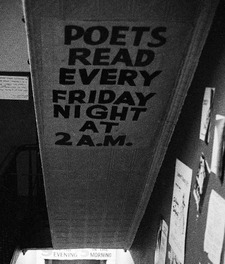 POETS
READ
EVERY
FRIDAY
NIGHT
AT
2 A.M.
EVENING MORNING